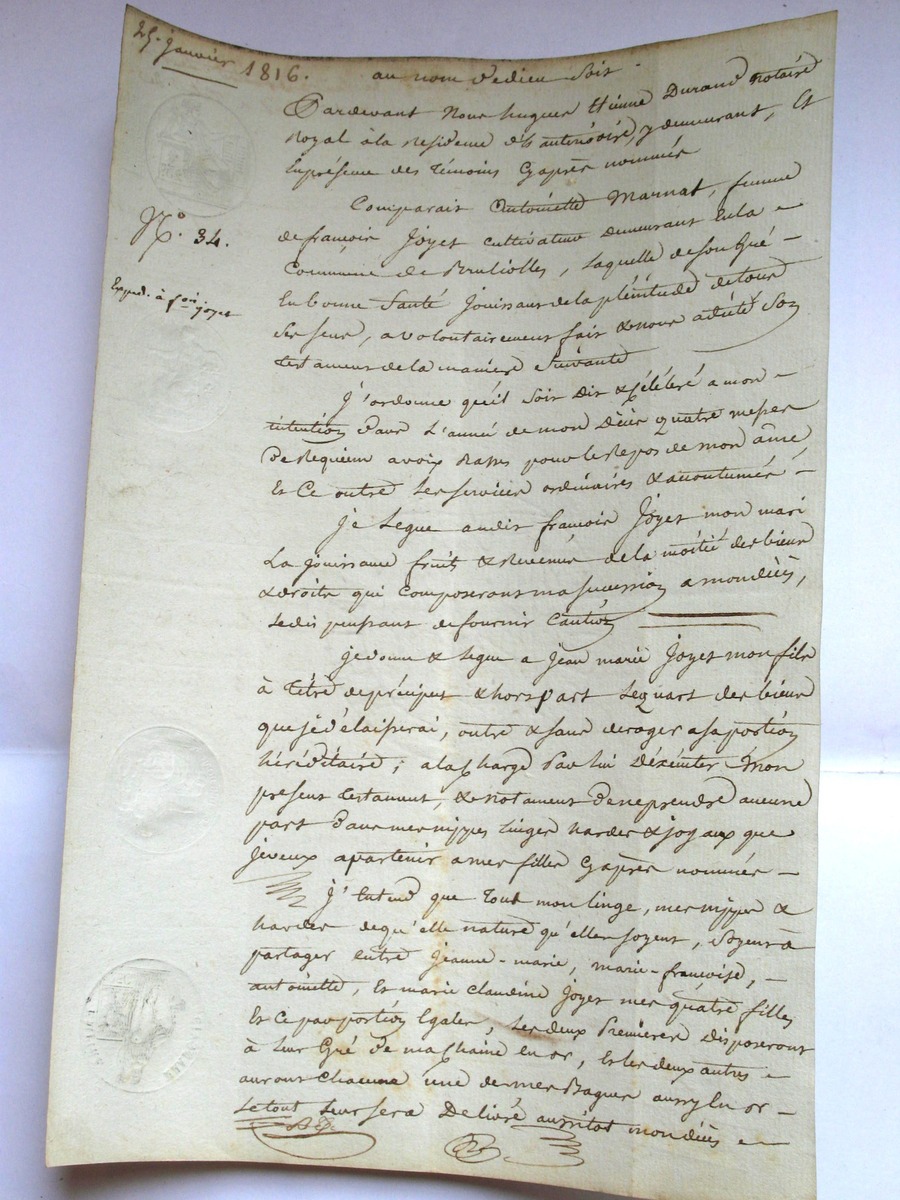 25. janvier 1816.
au nom de dieu soit
Pardevant Nous hugues Etienne Durand notaire
Royal à la residence de st antoine, y demeurant, Et
En présence des témoins Cyaprès nommés
Comparait Antoinette Marnat, femme
N.° 34.
de françois Joyet cultivateur demeurant En la
Commune de Brullioles, laquelle de son Gré
Exped. à fois joyet
En bonne Santé Jouissant de la plénitude de tous
Ses sens, a volontairement fait & nous a dicté Son
testament de la manière Suivante
J'ordonne qu'il soit Dit & Célébré a mon
intention Dans L'année de mon Décès quatre messes
De Requiem a voix Basse pour le Repos de mon âme,
Et Ce outre Les services ordinaires & accoutumés
Je Legue audit francois Joyet mon mari
La Jouissance fruits & Revenus de la moitié des biens
& droits qui Composeront ma succession a mon décès,
Le dispensant de fournir Caution
je donne & Legue a Jean marie Joyet mon fils
à Titre de préciput & hors part Le quart des biens
que je délaisserai, outre & sans deroger a sa portion
héréditaire; a la Charge Par lui D'éxécuter Mon
présent testament, & notament De ne prendre aucune
part Dans mes nippes Linges hardes & joyaux que
je veux apartenir a mes filles Cyaprès nommés
J'entend que tout mon linge, mes nippes &
hardes de qu'elle nature qu'elles soyent, Soyent à
partager entre Jeanne-marie, marie-françoise,
antoinette, Et marie claudine Joyet mes quatre filles
Et Ce par portion Egales, Les deux Premieres disposeront
à Leur Gré De ma Chaine en or, Et les deux autres
auront Chacune une de mes Bagues aussy En or
Le tout Leur sera Délivré aussitot mon décès